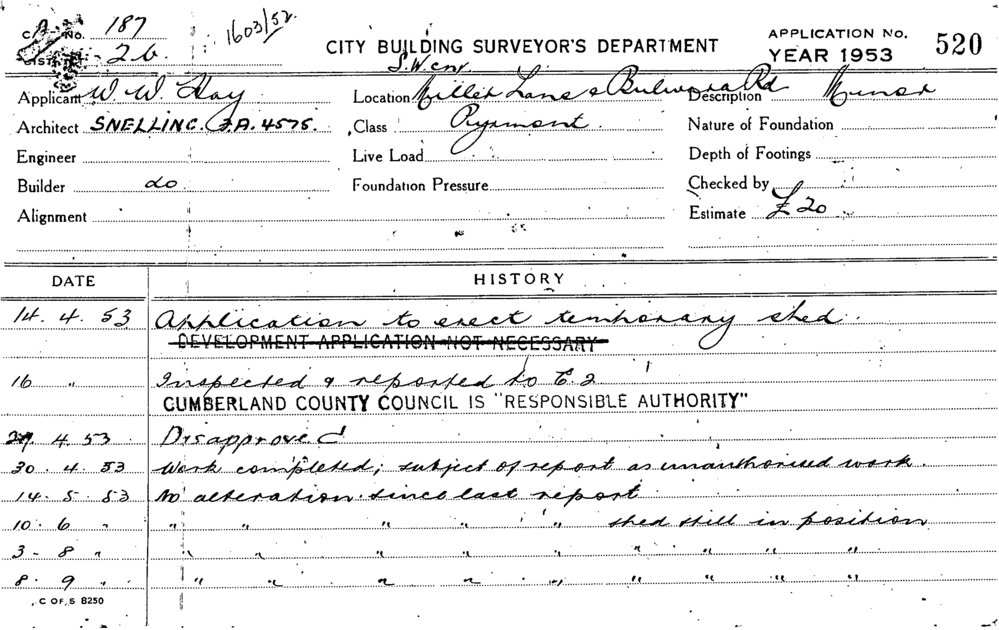 No. 187
1603/52.
26.
CITY BUILDING SURVEYOR'S DEPARTMENT
APPLICATION No.
YEAR 1953
520
S.W. cnr
Applicant W. W. Hay
Location Miller Lane & Bulwara Rd
Description Minor
Architect SNELLING. F.A. 4575.
Class Pyrmont.
Nature of Foundation
Engineer
Live Load
Depth of Footings
Builder do
Foundation Pressure
Checked by
Alignment
Estimate £20
DATE HISTORY
14. 4. 53 Application to erect temporary shed.
DEVELOPMENT APPLICATION NOT NECESSARY
16 " Inspected & reported to C. 2
CUMBERLAND COUNTY COUNCIL IS "RESPONSIBLE AUTHORITY"
4. 53 Disapproved
30. 4. 53 Work completed; subject of report as unauthorised work.
14. 5. 53 No alteration since last report
10. 6 " " " " " " shed still in position
3 - 8 " " " " " " " " " "
8. 9 " " " " " " " " " "
C OF S 8250